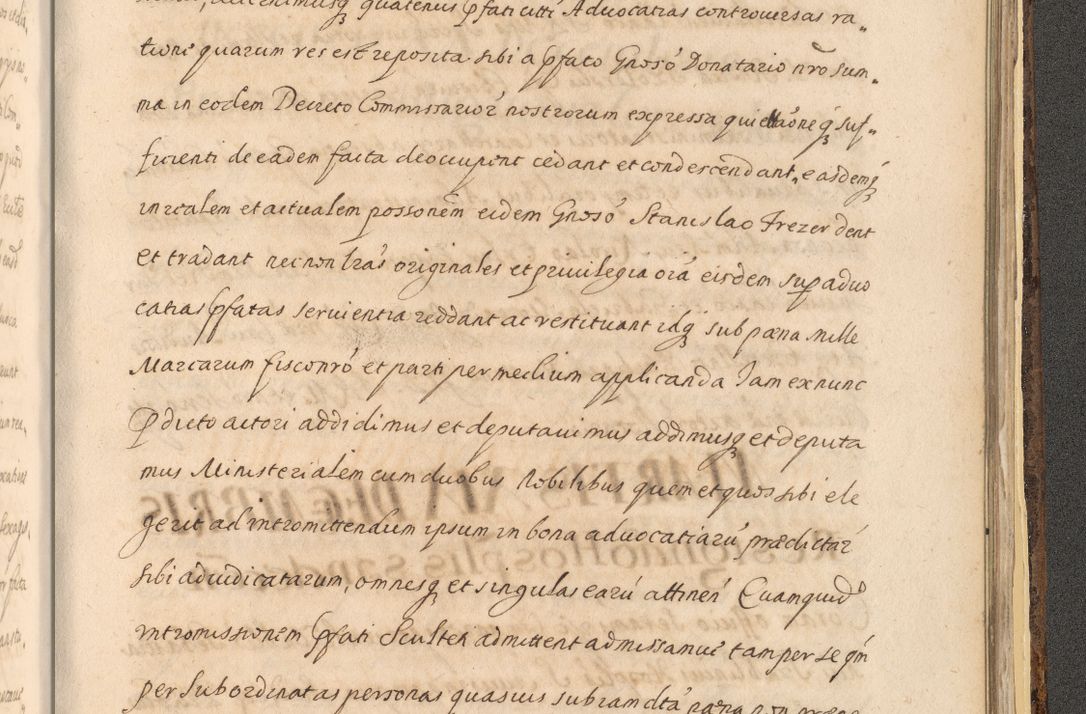 quatenus pfati citti Advocatias controversas ra„
tione quarum res est reposita sibi a pfato Gnoso Donatario nro sum„
ma in eodem Decreto Commissarior nostrorum expressa quiettaoneq suf„
ficienti de eadem facta deoccupent cedant et condescendant, easdemq
in realem et actualem possonem eidem Gnoso Stanislao Frezer dent
et tradant necnon lras originales et privilegia oia eisdem sup advo
catias pfatas servientia reddant ac restituant idq sub pæna Mille
Marcarum fisco nro et parti per medium applicanda Iam ex nunc
Pdicto actori addidimus et deputavimus addimusq et deputa
mus Ministerialem cum duobus Nobilibus quem et quos sibi ele
gerit ad intromittendum ipsum in bona advocatiarū prædictar
sibi adiudicatarum, omnesq et singulas earū attinen Quamquid
intromissionem pfati Sculteti admittent admissamve tam per se qm
per subordinatas personas quasvis subiam dta pæna non